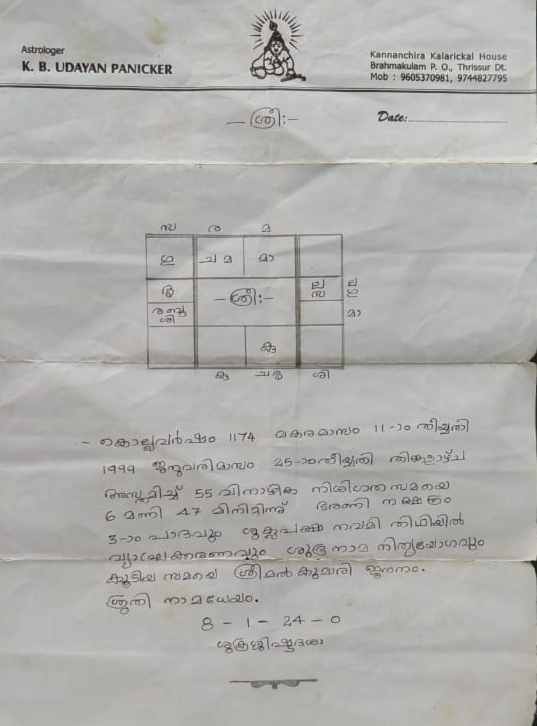 Astrologer
K. B. UDAYAN PANICKER
Kannanchira Kalarickal House
Brahmakulam P. O., Thrissur Dt.
Mob : 9605370981, 9744827795
– ശ്രീഃ –
Date:
സ ര മ
ഗു ച മ മാ
– ശ്രീഃ –
ല
മാ
കു
ശി
– കൊല്ലവർഷം 1174 മകരമാസം 11-ാം തിയ്യതി
1999 ജനുവരിമാസം 25-ാംതിയ്യതി തിങ്കളാഴ്ച
അസ്തമിച്ച് 55 വിനാഴിക നിശിഗത സമയെ
6 മണി 47 മിനിട്ടിന്ന് ഭരണി നക്ഷത്രം
3-ാം പാദവും ശുക്ലപക്ഷ നവമി തിഥിയിൽ
കരണവും ശുഭ്ര നാമ നിത്യയോഗവും
കൂടിയ സമയെ ശ്രീമൽ കുമാരി ജനനം.
ശ്രുതി നാമധേയം.
8 – 1 – 24 – 0
ശുക്രശിഷ്ടദശാ